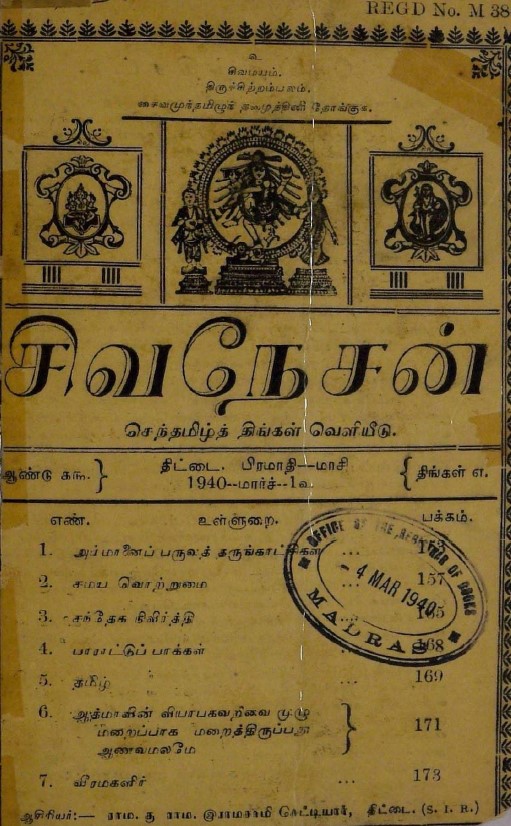 REGD No. M 38
உ
சிவமயம்.
திருச்சிற்றம்பலம்.
சைவமுந்தமிழுந் தழைத்தினி தோங்குக.
சிவநேசன்
செந்தமிழ்த் திங்கள் வெளியீடு.
ஆண்டு கரு.
திட்டை. பிரமாதி—மாசி
திங்கள் எ.
1940--மார்ச்--1உ
எண். உள்ளுறை. பக்கம்.
1. அம்மானைப் பருவத் தருங்காட்சிகள் ...
2. சமய வொற்றுமை ... 157
3. சந்தேக நிவிர்த்தி
4. பாராட்டுப் பாக்கள் 168
5. தமிழ் 169
6. ஆத்மாவின் வியாபகவறிவை முழு
மறைப்பாக மறைத்திருப்பது
ஆணவமலமே
171
7. வீரமகளிர் ... 173
ஆசிரியர்:— ராம. கு ராம. இராமசாமி செட்டியார், திட்டை. (S. I. R.)
OFFICE OF THE REGISTRAR OF BOOKS
- 4 MAR 1940
MADRAS